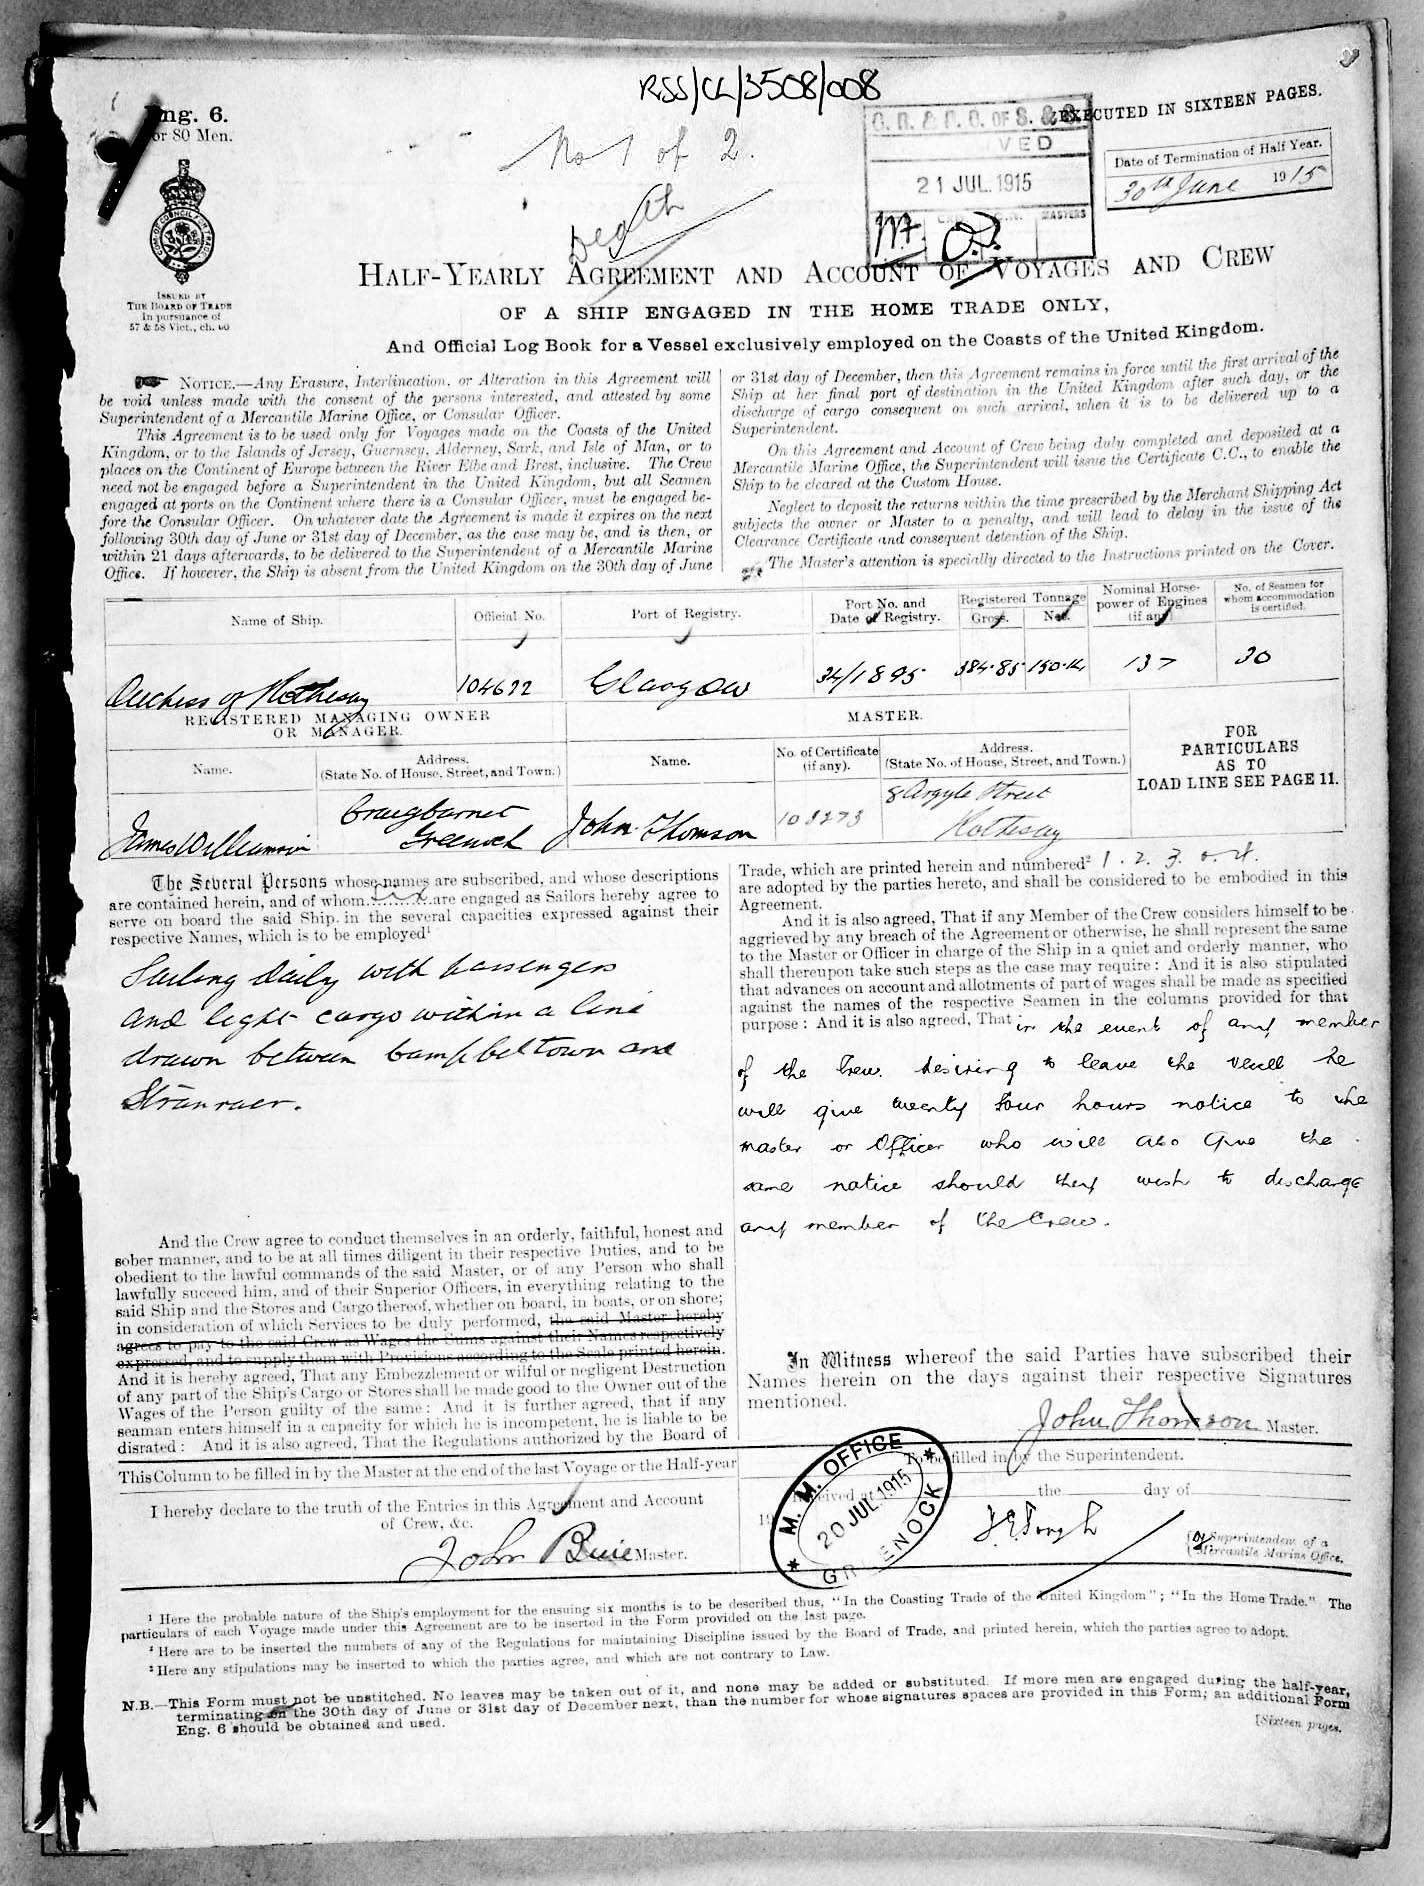 RSS/CL/3508/008
Eng. 6.
For 80 Men.
EXECUTED IN SIXTEEN PAGES.
No 1 of 2.
Death
21 JUL. 1915
MASTERS
Date of Termination of Half Year.
30th June 1915
ISSUED BY
THE BOARD OF TRADE
In pursuance of
57 & 58 Vict., ch. 60
HALF-YEARLY AGREEMENT AND ACCOUNT OF VOYAGES AND CREW
OF A SHIP ENGAGED IN THE HOME TRADE ONLY,
And Official Log Book for a Vessel exclusively employed on the Coasts of the United Kingdom.
NOTICE.—Any Erasure, Interlineation, or Alteration in this Agreement will
be void unless made with the consent of the persons interested, and attested by some
Superintendent of a Mercantile Marine Office, or Consular Officer.
This Agreement is to be used only for Voyages made on the Coasts of the United
Kingdom, or to the Islands of Jersey, Guernsey, Alderney, Sark, and Isle of Man, or to
places on the Continent of Europe between the River Elbe and Brest, inclusive. The Crew
need not be engaged before a Superintendent in the United Kingdom, but all Seamen
engaged at ports on the Continent where there is a Consular Officer, must be engaged be-
fore the Consular Officer. On whatever date the Agreement is made it expires on the next
following 30th day of June or 31st day of December, as the case may be, and is then, or
within 21 days afterwards, to be delivered to the Superintendent of a Mercantile Marine
Office. If however, the Ship is absent from the United Kingdom on the 30th day of June
or 31st day of December, then this Agreement remains in force until the first arrival of the
Ship at her final port of destination in the United Kingdom after such day, or the
discharge of cargo consequent on such arrival, when it is to be delivered up to a
Superintendent.
On this Agreement and Account of Crew being duly completed and deposited at a
Mercantile Marine Office, the Superintendent will issue the Certificate C.C., to enable the
Ship to be cleared at the Custom House.
Neglect to deposit the returns within the time prescribed by the Merchant Shipping Act
subjects the owner or Master to a penalty, and will lead to delay in the issue of the
Clearance Certificate and consequent detention of the Ship.
The Master's attention is specially directed to the Instructions printed on the Cover.
Name of Ship. Official No. Port of Registry. Port No. and Date of Registry. Registered Tonnage Gross. Net. Nominal Horse-power of Engines (if any) No. of Seamen for whom accommodation is certified.
Duchess of Rothesay 104622 Glasgow 34/1895 384.85 150.14 137 30
REGISTERED MANAGING OWNER OR MANAGER. MASTER.
Name. Address. (State No. of House, Street, and Town.) Name. No. of Certificate (if any). Address. (State No. of House, Street, and Town.)
FOR PARTICULARS AS TO LOAD LINE SEE PAGE 11.
James Williamson Craigbarnet Greenock John Thomson 108273 8 Argyle Street Rothesay
The Several Persons whose names are subscribed, and whose descriptions
are contained herein, and of whom six are engaged as Sailors hereby agree to
serve on board the said Ship. in the several capacities expressed against their
respective Names, which is to be employed¹
Sailing Daily with passengers
and light cargo within a line
drawn between Campbeltown and
Stranraer.
And the Crew agree to conduct themselves in an orderly, faithful, honest and
sober manner, and to be at all times diligent in their respective Duties, and to be
obedient to the lawful commands of the said Master, or of any Person who shall
lawfully succeed him, and of their Superior Officers, in everything relating to the
said Ship and the Stores and Cargo thereof, whether on board, in boats, or on shore;
in consideration of which Services to be duly performed, the said Master hereby
agrees to pay to the said Crew as Wages the Sums against their Names respectively
expressed, and to supply them with Provisions according to the Scale printed herein.
And it is hereby agreed, That any Embezzlement or wilful or negligent Destruction
of any part of the Ship's Cargo or Stores shall be made good to the Owner out of the
Wages of the Person guilty of the same: And it is further agreed, that if any
seaman enters himself in a capacity for which he is incompetent, he is liable to be
disrated: And it is also agreed, That the Regulations authorized by the Board of
Trade, which are printed herein and numbered² 1. 2. 3. & 4.
are adopted by the parties hereto, and shall be considered to be embodied in this
Agreement.
And it is also agreed, That if any Member of the Crew considers himself to be
aggrieved by any breach of the Agreement or otherwise, he shall represent the same
to the Master or Officer in charge of the Ship in a quiet and orderly manner, who
shall thereupon take such steps as the case may require: And it is also stipulated
that advances on account and allotments of part of wages shall be made as specified
against the names of the respective Seamen in the columns provided for that
purpose: And it is also agreed, That in the event of any member
of the Crew desiring to leave the vessel he
will give twenty four hours notice to the
master or Officer who will also give the
same notice should they wish to discharge
any member of the Crew.
In Witness whereof the said Parties have subscribed their
Names herein on the days against their respective Signatures
mentioned.
John Thomson Master.
This Column to be filled in by the Master at the end of the last Voyage or the Half-year
I hereby declare to the truth of the Entries in this Agreement and Account
of Crew, &c.
John Buie Master.
To be filled in by the Superintendent.
Received at the day of
19
M. M. OFFICE
20 JUL 1915
GREENOCK
Superintendent of a
Mercantile Marine Office.
¹ Here the probable nature of the Ship's employment for the ensuing six months is to be described thus, "In the Coasting Trade of the United Kingdom"; "In the Home Trade." The
particulars of each Voyage made under this Agreement are to be inserted in the Form provided on the last page.
² Here are to be inserted the numbers of any of the Regulations for maintaining Discipline issued by the Board of Trade, and printed herein, which the parties agree to adopt.
³ Here any stipulations may be inserted to which the parties agree, and which are not contrary to Law.
N.B.—This Form must not be unstitched. No leaves may be taken out of it, and none may be added or substituted. If more men are engaged during the half-year,
terminating on the 30th day of June or 31st day of December next, than the number for whose signatures spaces are provided in this Form; an additional Form
Eng. 6 should be obtained and used.
[Sixteen pages.